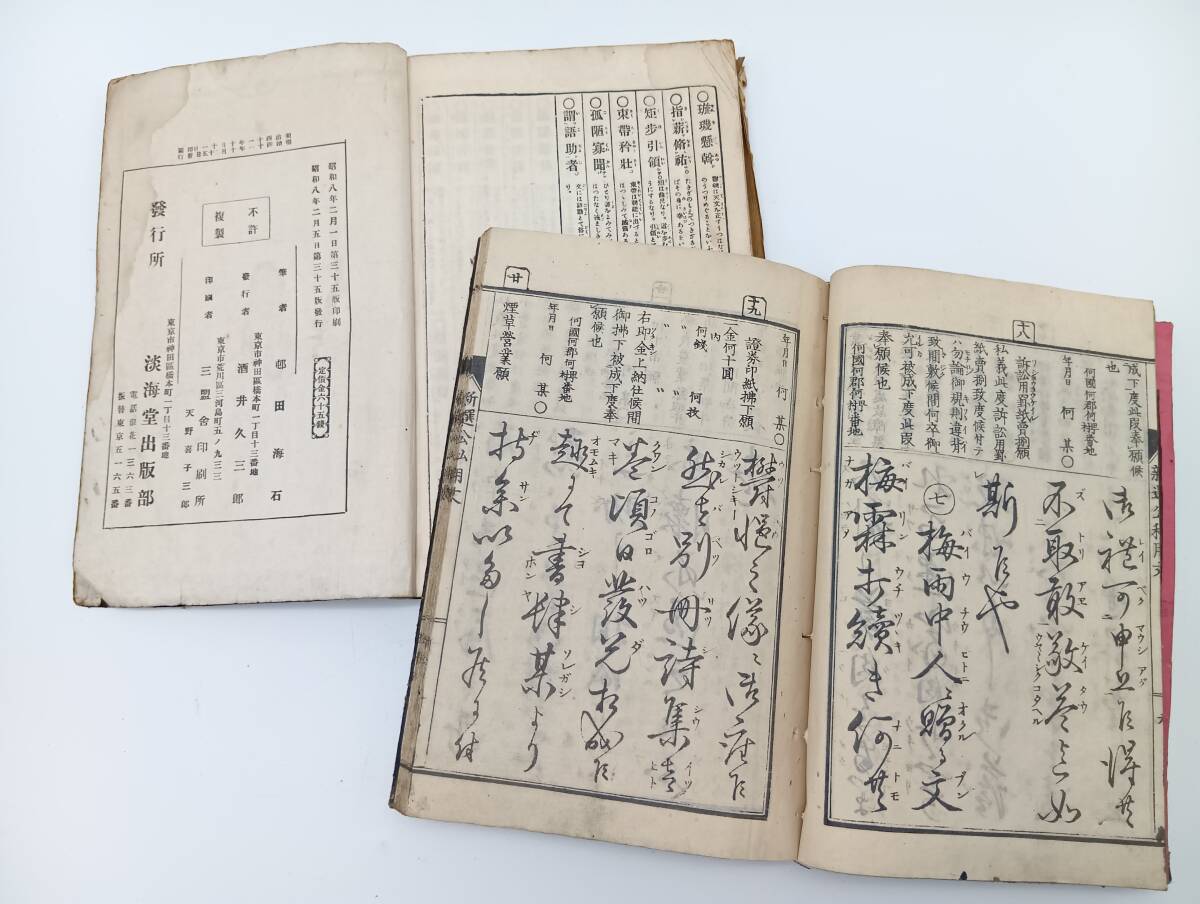 珠璣懸斡
指薪脩祐
矩步引領
束帶矜壯
孤陋寡聞
謂語助者
昭和八年二月一日第三十五版印刷
昭和八年二月五日第三十五版發行
定價金六十五錢
不許
複製
筆者 邨田海石
東京市神田區橋本町一丁目十三番地
發行者 酒井久三郎
東京市荒川區三河島町五ノ九三三
印刷者 天野喜子三郎
三盟舍印刷所
發行所
東京市神田區橋本町一丁目十三番地
淡海堂出版部
電話浪花一三六三番
振替東京五一六五番
十八
成下度此段奉願候
也
何國何郡何村番地
年月日 何某
訴訟用罫紙賣捌願
私義此度訴訟用罫
紙賣捌致度候付テ
ハ勿論御規則違背
致間敷候間何卒御
允可被成下度此段
奉願候也
何國何郡何村番地
新選公私用文
御禮可申上候得共
不取敢敬答迄如
斯候也
七 梅雨中人ニ贈る文
梅霖打續き何共
十九
年月日 何某
證券印紙拂下願
一金何十圓
内
何錢 何枚
〃 〃
右印金上納仕候間
御拂下被成下度奉
願候也
何國何郡何村番地
年月日 何某
廿
煙草營業願
鬱悒之儀ニ御座候
然者別冊詩集壹
卷頃日發兌相成候
趣にて書肆某より
持參
新選公私用文